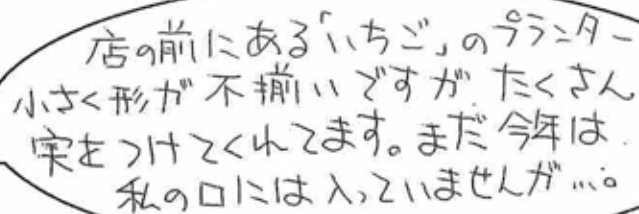 店の前にある「いちご」のプランター
小さく形が不揃いですが たくさん
実をつけてくれてます。まだ今年は
私の口には入っていませんが…。